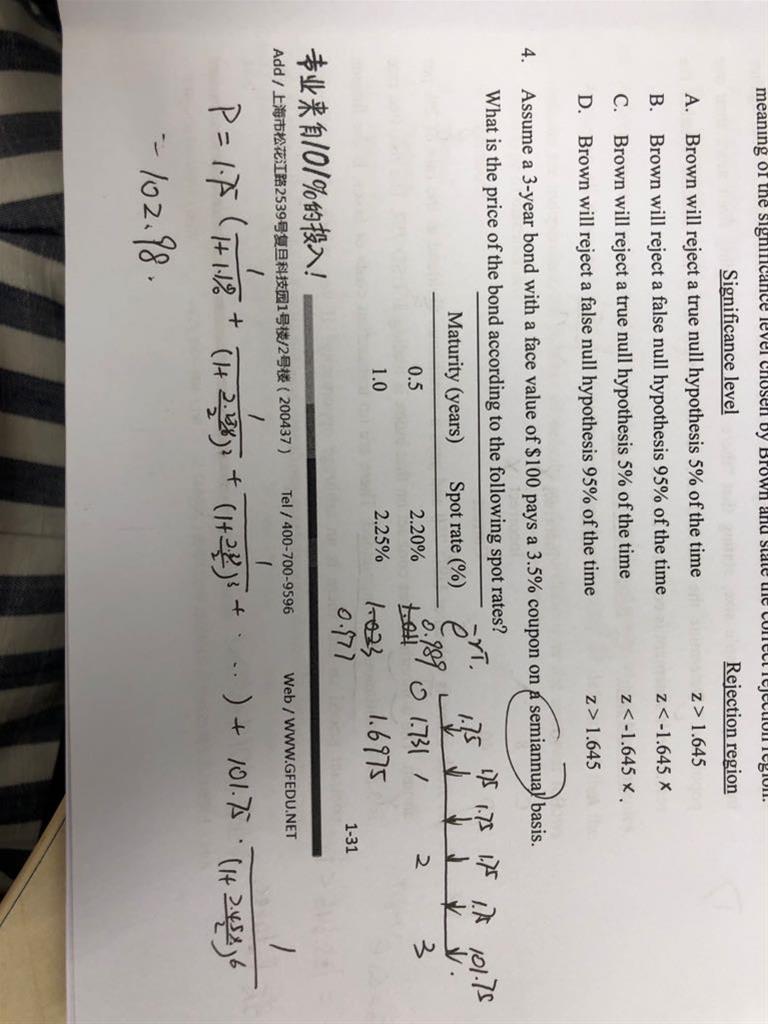 meaning of the significance level chosen by Brown and state the correct rejection region.
Significance level Rejection region
A. Brown will reject a true null hypothesis 5% of the time z > 1.645
B. Brown will reject a false null hypothesis 95% of the time z < -1.645 ×
C. Brown will reject a true null hypothesis 5% of the time z < -1.645 ×.
D. Brown will reject a false null hypothesis 95% of the time z > 1.645
4. Assume a 3-year bond with a face value of $100 pays a 3.5% coupon on a semiannual basis.
What is the price of the bond according to the following spot rates?
1.75 1.75 1.75 1.75 1.75 101.75
Maturity (years) Spot rate (%) e^-rT.
0 1 2 3
0.5 2.20% 1.011 0.989 1.731
1.0 2.25% 1.023 1.6975
0.977
1-31
专业来自101%的投入!
Add / 上海市松花江路2539号复旦科技园1号楼/2号楼 ( 200437 ) Tel / 400-700-9596 Web / WWW.GFEDU.NET
P = 1.75 ( 1/(1+1.1%) + 1/(1+ 2.25%/2)² + 1/(1+ /2)³ + ... ) + 101.75 · 1/(1+ 2.45%/2)⁶
= 102.98.